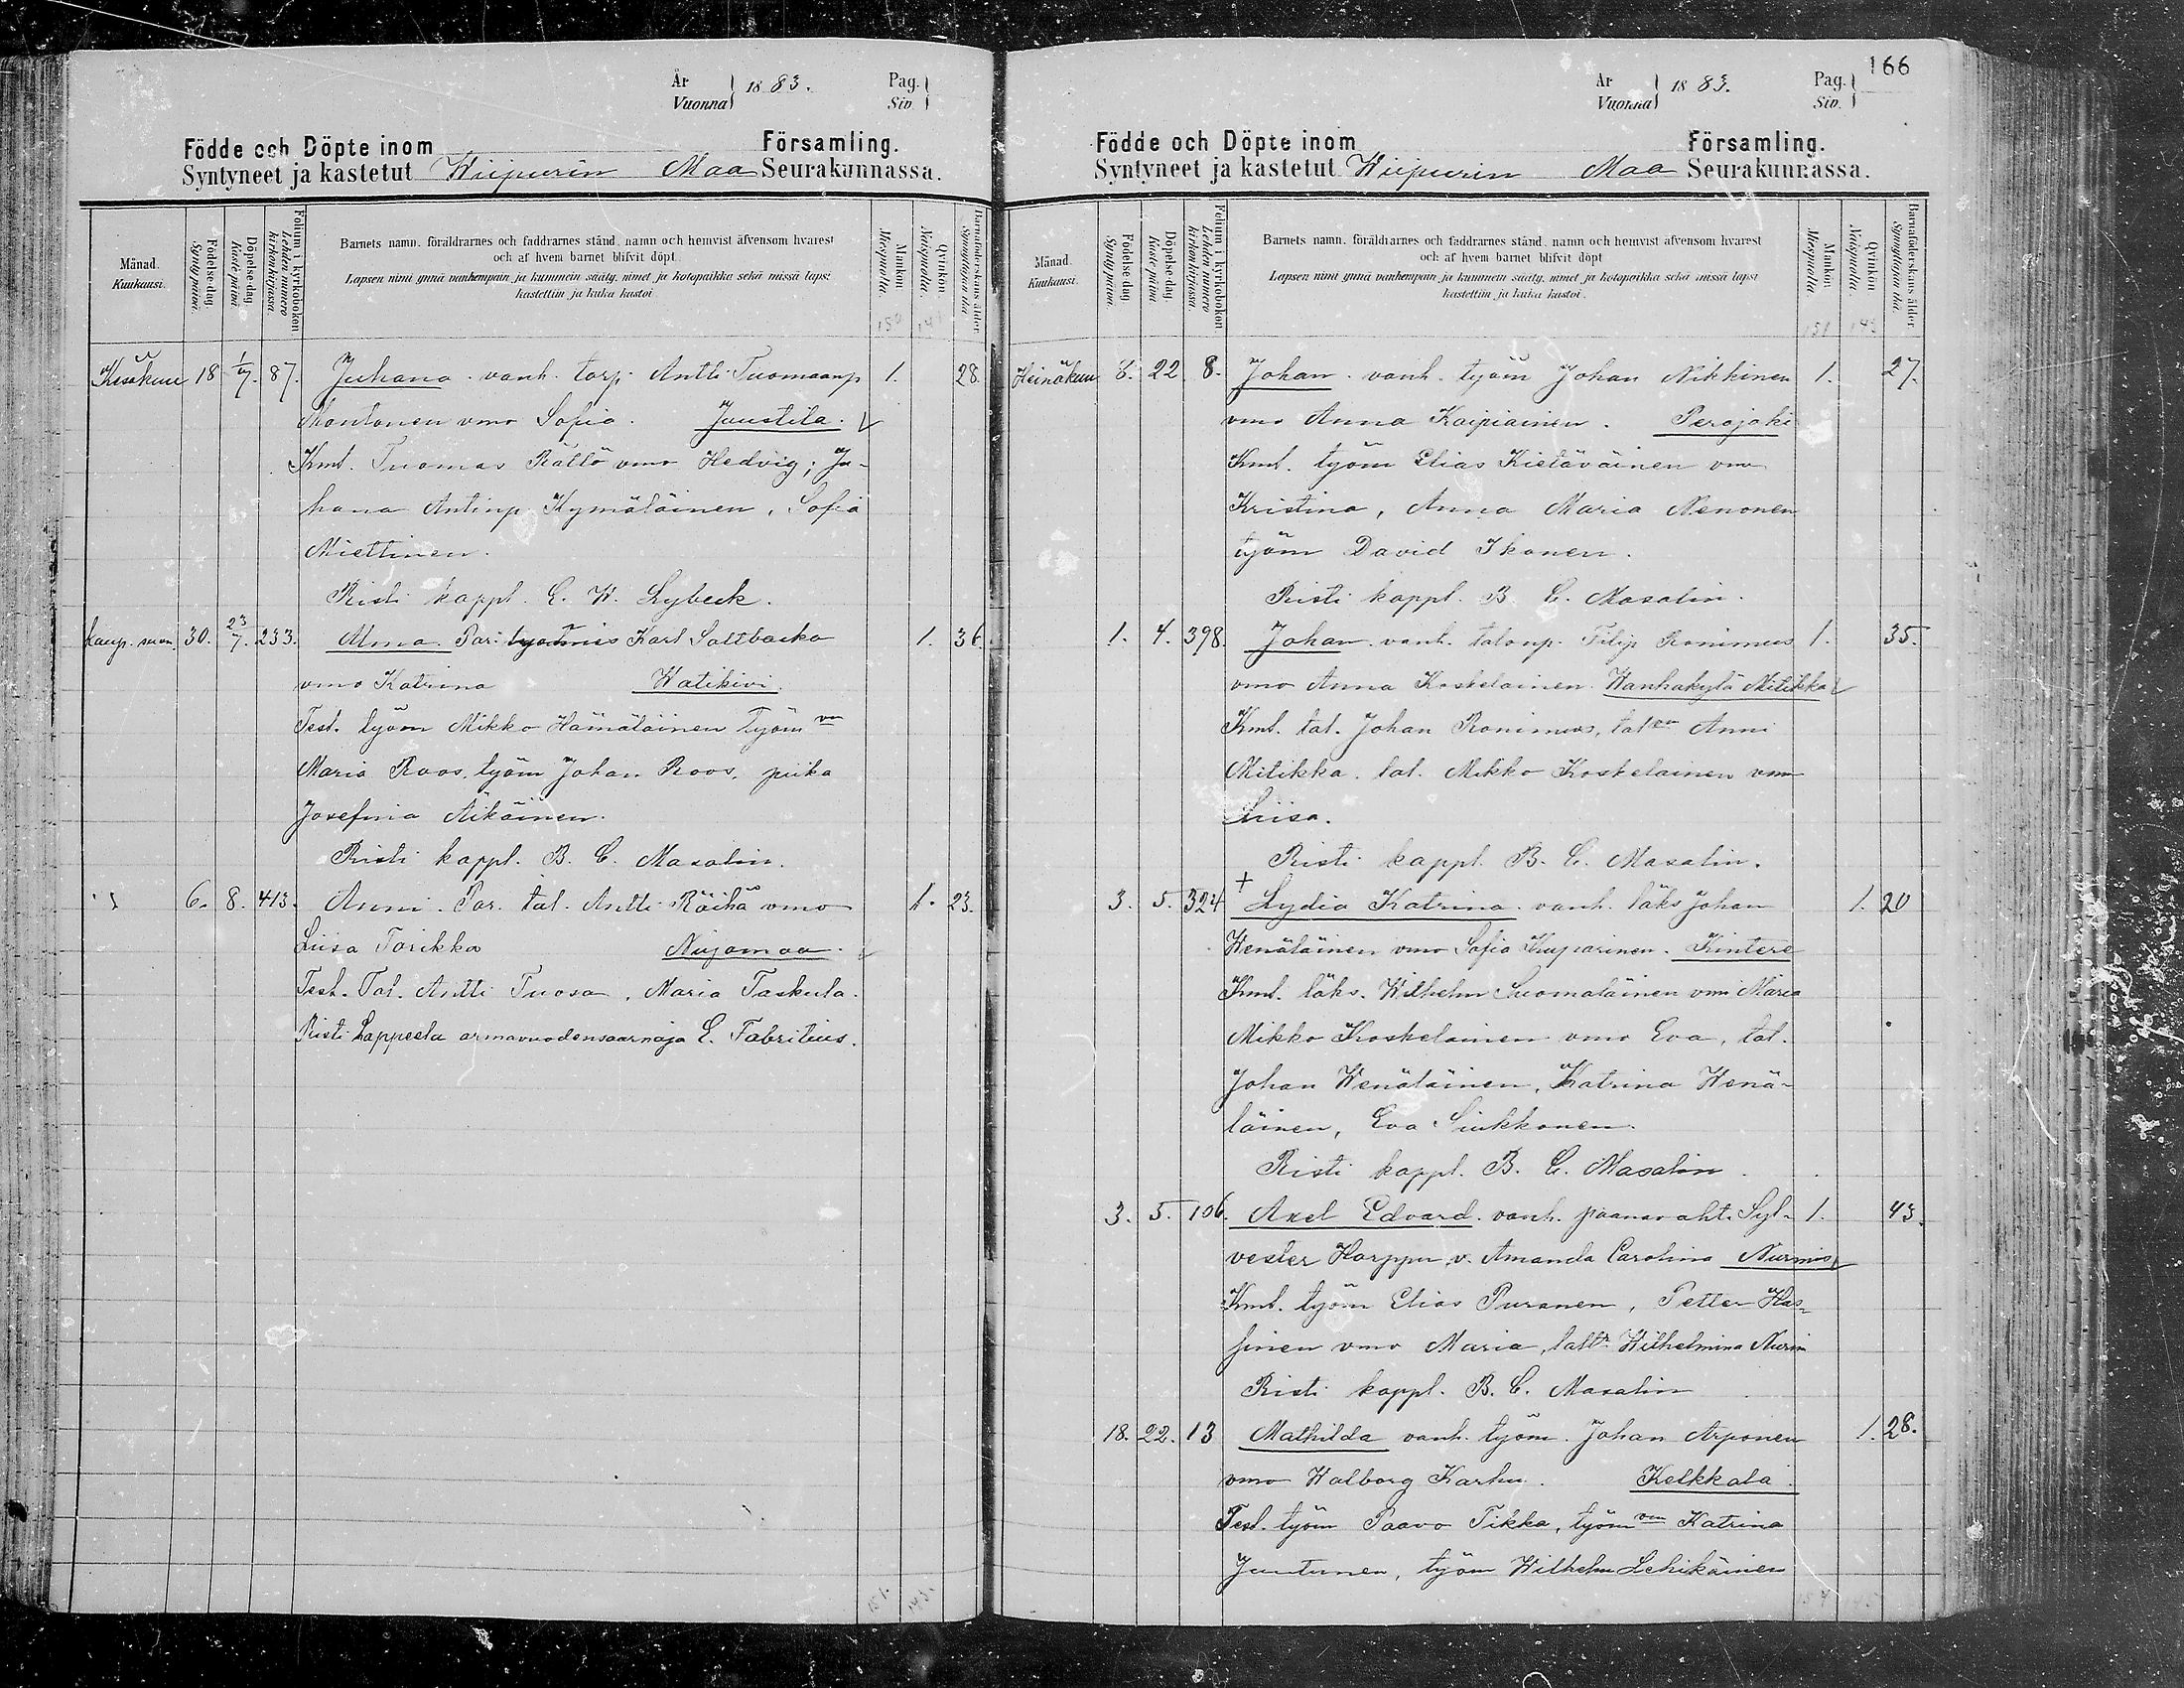 År
Vuonna
1883.
Pag.
Siv.
Födde och Döpte inom Församling.
Syntyneet ja kastetut Wiipurin Maa Seurakunnassa.
Månad.
Kuukausi.
Födelse-dag.
Syntypäivä.
Döpelse-dag.
Kaste-päivä.
Folium i kyrkoboken
Lehden numero
kirkonkirjassa.
Barnets namn, föräldrarnes och faddrarnes stånd, namn och hemvist äfvensom hvarest
och af hvem barnet blifvit döpt.
Lapsen nimi ynnä vanhempain ja kummein sääty, nimet ja kotopaikka sekä missä lapsi
kastettiin ja kuka kastoi
Mankön.
Miespuolia.
Qvinkön.
Naispuolia.
Barnaföderskans ålder
Synnyttäjän ikä.
Kesäkuu 18 1/7. 87. Juhana. vanh. torp. Antti Tuomaanp 1. 28.
vmo Sofia. Juustila.
Kmt. Tuomas Rättö vmo Hedvig; Ju-
hana Antinp Kymäläinen, Sofia
Miettinen.
Risti kappl. E. W. Lybeck.
kaup. 30. 23/7. 233. Alma. Par. työmies Karl Saltbacka 1. 36.
vmo Katrina Watikivi.
Test. työm Mikko Hämäläinen työm vm
Maria Roos, työm Johan Roos, piika
Josefina Äikäinen.
Risti kappl. B. C. Masalin.
6. 8. 413. Anni. Par. tal. Antti Räihä vmo 1. 23.
Liisa Torikka Nuijamaa.
Test. Tal. Antti Tuosa, Maria Taskula.
Risti Lappeela armovuodensaarnaja E. Fabritius.
151. 143.
166
År
Vuonna
1883.
Pag.
Siv.
Födde och Döpte inom Församling.
Syntyneet ja kastetut Wiipurin Maa Seurakunnassa.
Månad.
Kuukausi.
Födelse-dag
Syntypäivä.
Döpelse-dag
Kaste-päivä.
Folium i kyrkoboken
Lehden numero
kirkonkirjassa.
Barnets namn, föräldrarnes och faddrarnes stånd, namn och hemvist äfvensom hvarest
och af hvem barnet blifvit döpt
Lapsen nimi ynnä vanhempain ja kummein sääty, nimet ja kotopaikka sekä missä lapsi
kastettiin ja kuka kastoi.
Mankön
Miespuolia
Qvinkön
Naispuolia.
Barnaföderskans ålder
Synnyttäjän ikä.
Heinäkuu 8. 22. 8. Johan. vanh. työm Johan Nikkinen 1. 27.
vmo Anna Kaipiainen. Perojoki
Kmt. työm Elias Kietäväinen vmo
Kristina, Anna Maria Nenonen
työm David Ikonen.
Risti kappl. B. C. Masalin.
1. 4. 398. Johan. vanh. talonp. Filip Ronimus 1. 35.
vmo Anna Koskelainen. Wanhakylä Mitikka
Kmt. tal. Johan Ronimus, tal vm Anni
Mitikka. tal. Mikko Koskelainen vmo
Liisa.
Risti kappl. B. C. Masalin.
3. 5. 324 + Lydia Katrina. vanh. läks Johan 1. 20
Wenäläinen vmo Sofia Kuparinen. Kintere
Kmt. läks. Wilhelm Suomalainen vmo Maria
Mikko Koskelainen vmo Eva, tal.
Johan Wenäläinen, Katrina Wenä-
läinen, Eva Sinkkonen.
Risti kappl. B. C. Masalin.
3. 5. 106. Axel Edvard. vanh. paanuvaht. Syl- 1. 43.
vester Harppu v. Amanda Carolina Nurmis
Kmt. työm Elias Puranen, Petter Has-
sinen vmo Maria, Wilhelmina Nurmi
Risti kappl. B. C. Masalin
18. 22. 13 Mathilda vanh. työm. Johan Arponen 1. 28.
vmo Walborg Karhu. Kelkkala.
Test. työm Paavo Tikka, työm vm Katrina
Juntunen, työm Wilhelm Lehikäinen